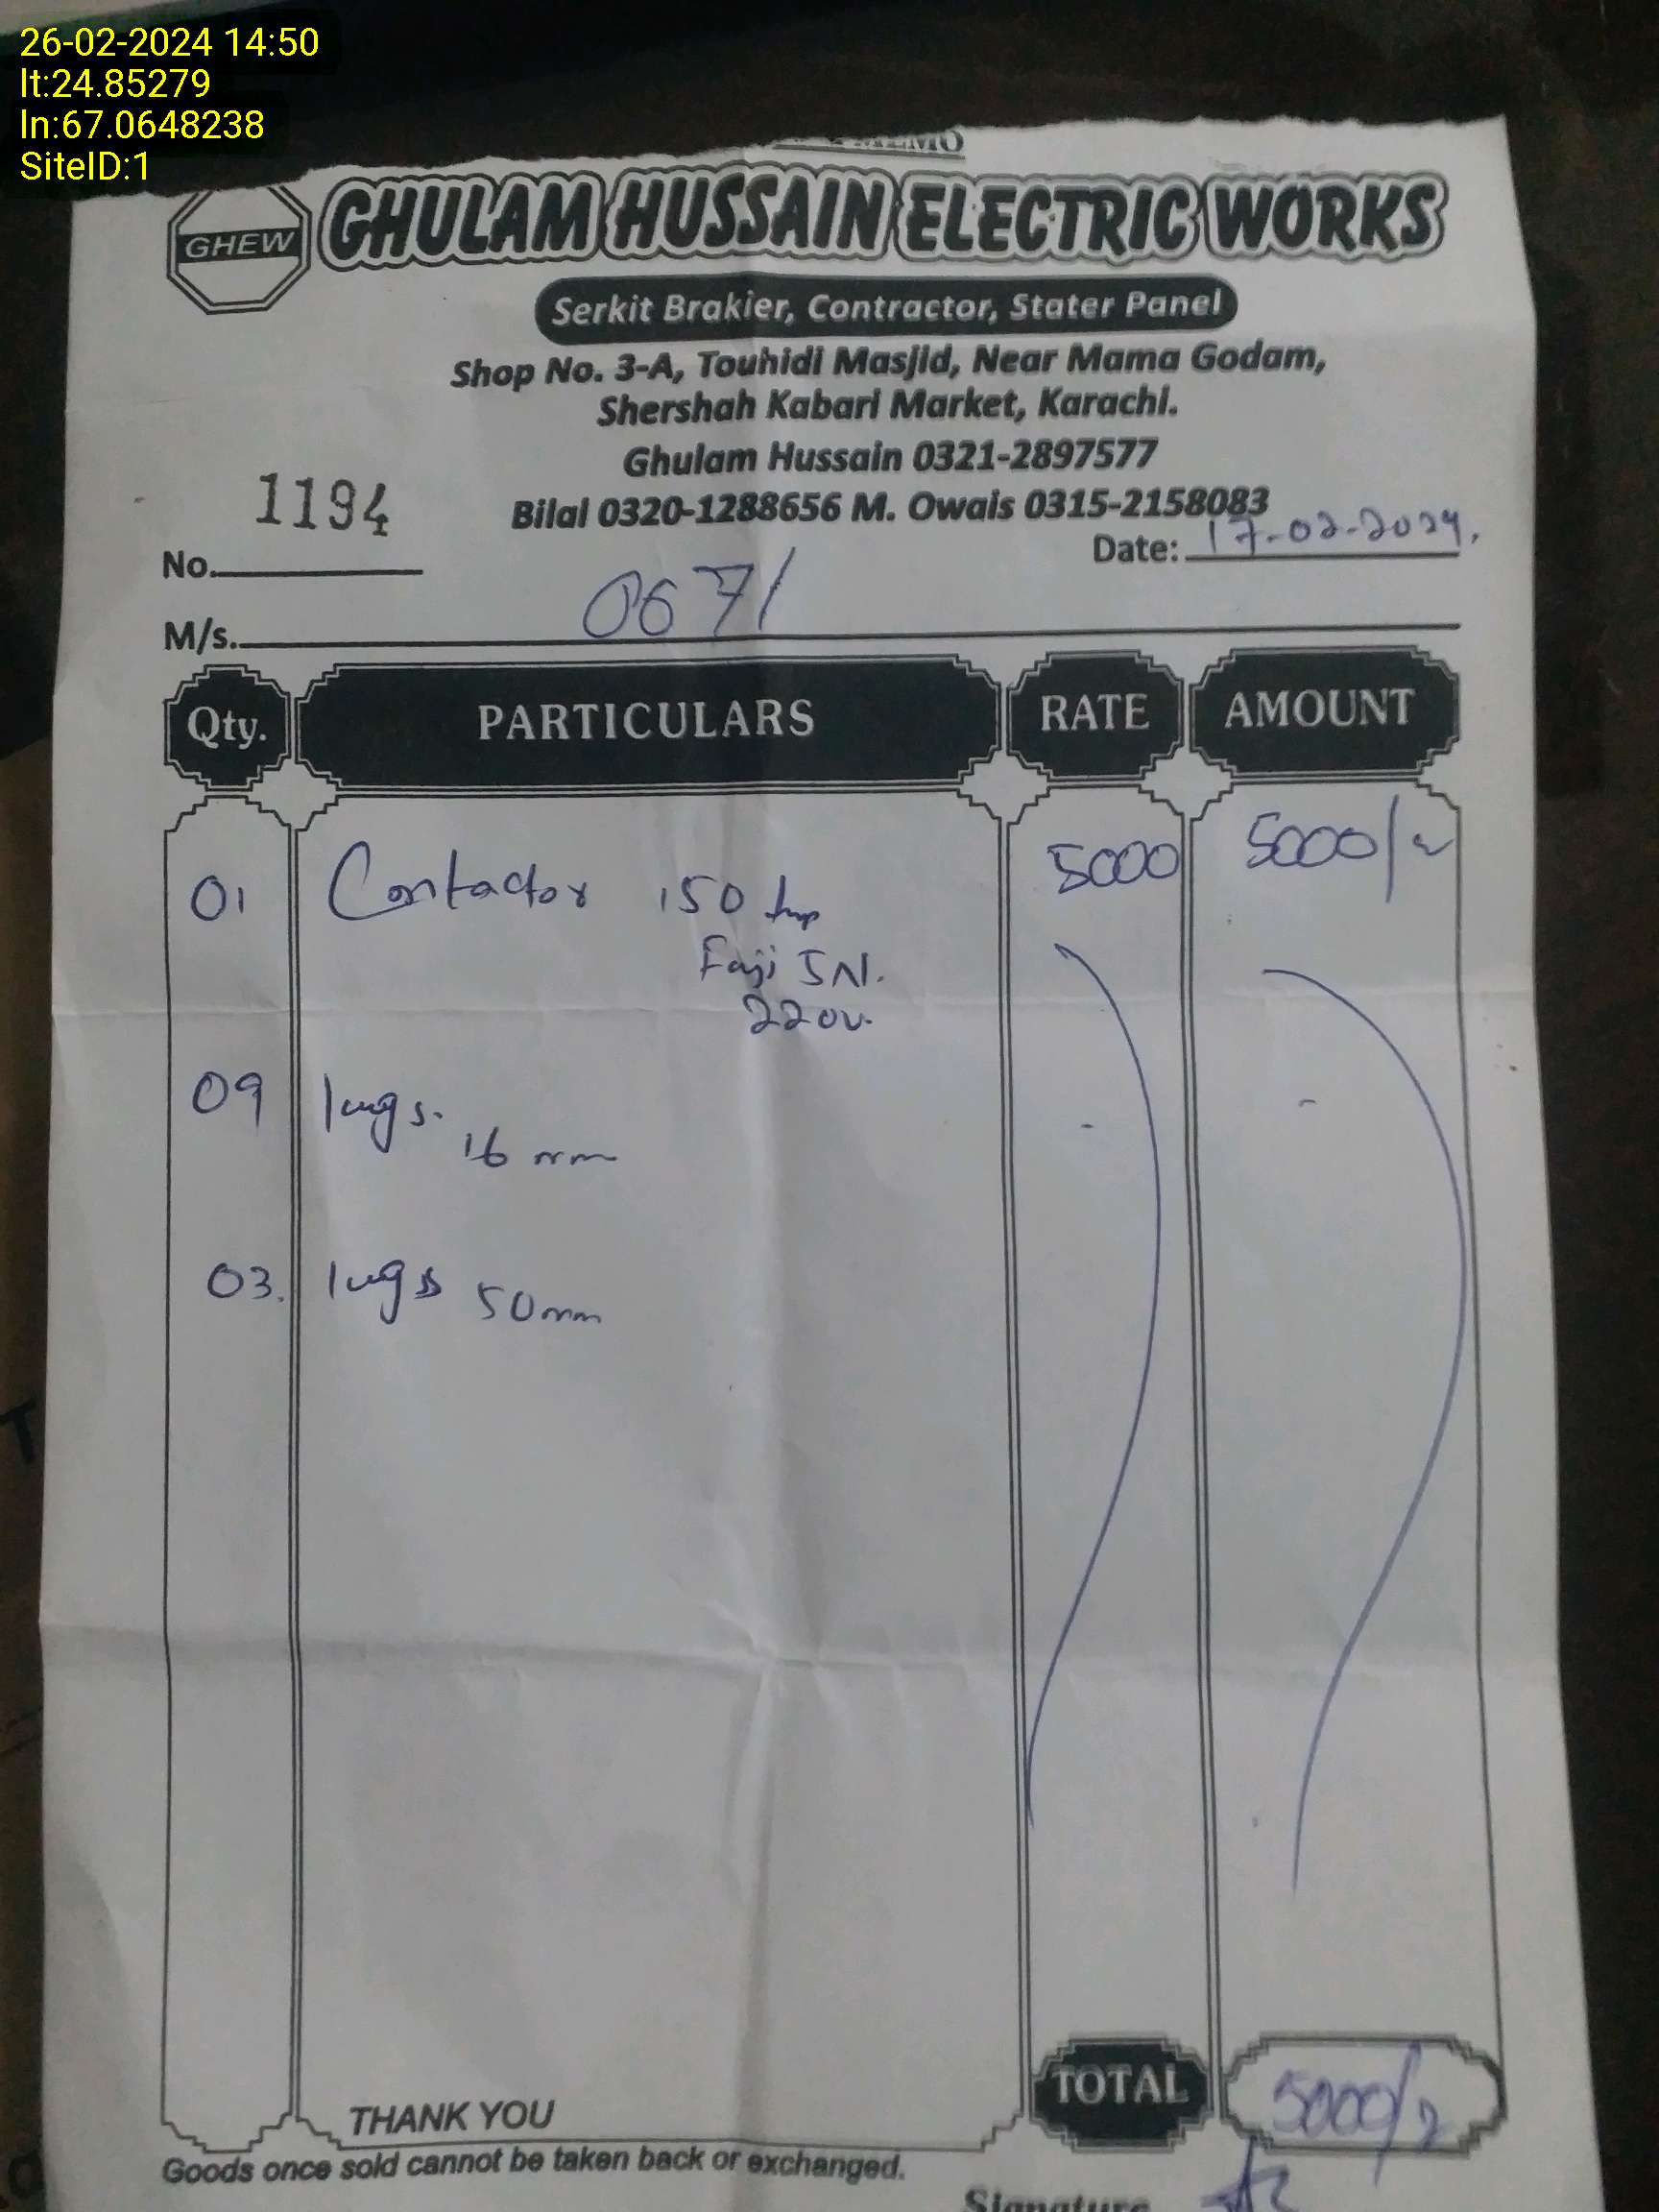 26-02-2024 14:50
lt:24.85279
ln:67.0648238
SiteID:1
MEMO
GHEW
GHULAM HUSSAIN ELECTRIC WORKS
Serkit Brakier, Contractor, Stater Panel
Shop No. 3-A, Touhidi Masjid, Near Mama Godam,
Shershah Kabari Market, Karachi.
Ghulam Hussain 0321-2897577
Bilal 0320-1288656 M. Owais 0315-2158083
No. 1194
Date: 17-02-2024.
M/s. 0671
Qty. PARTICULARS RATE AMOUNT
01 Contactor 150 Amp 5000 5000/-
Fuji 5N.
220v.
09 lugs. 16mm
03. lugs 50mm
TOTAL 5000/-
THANK YOU
Goods once sold cannot be taken back or exchanged.
Signature